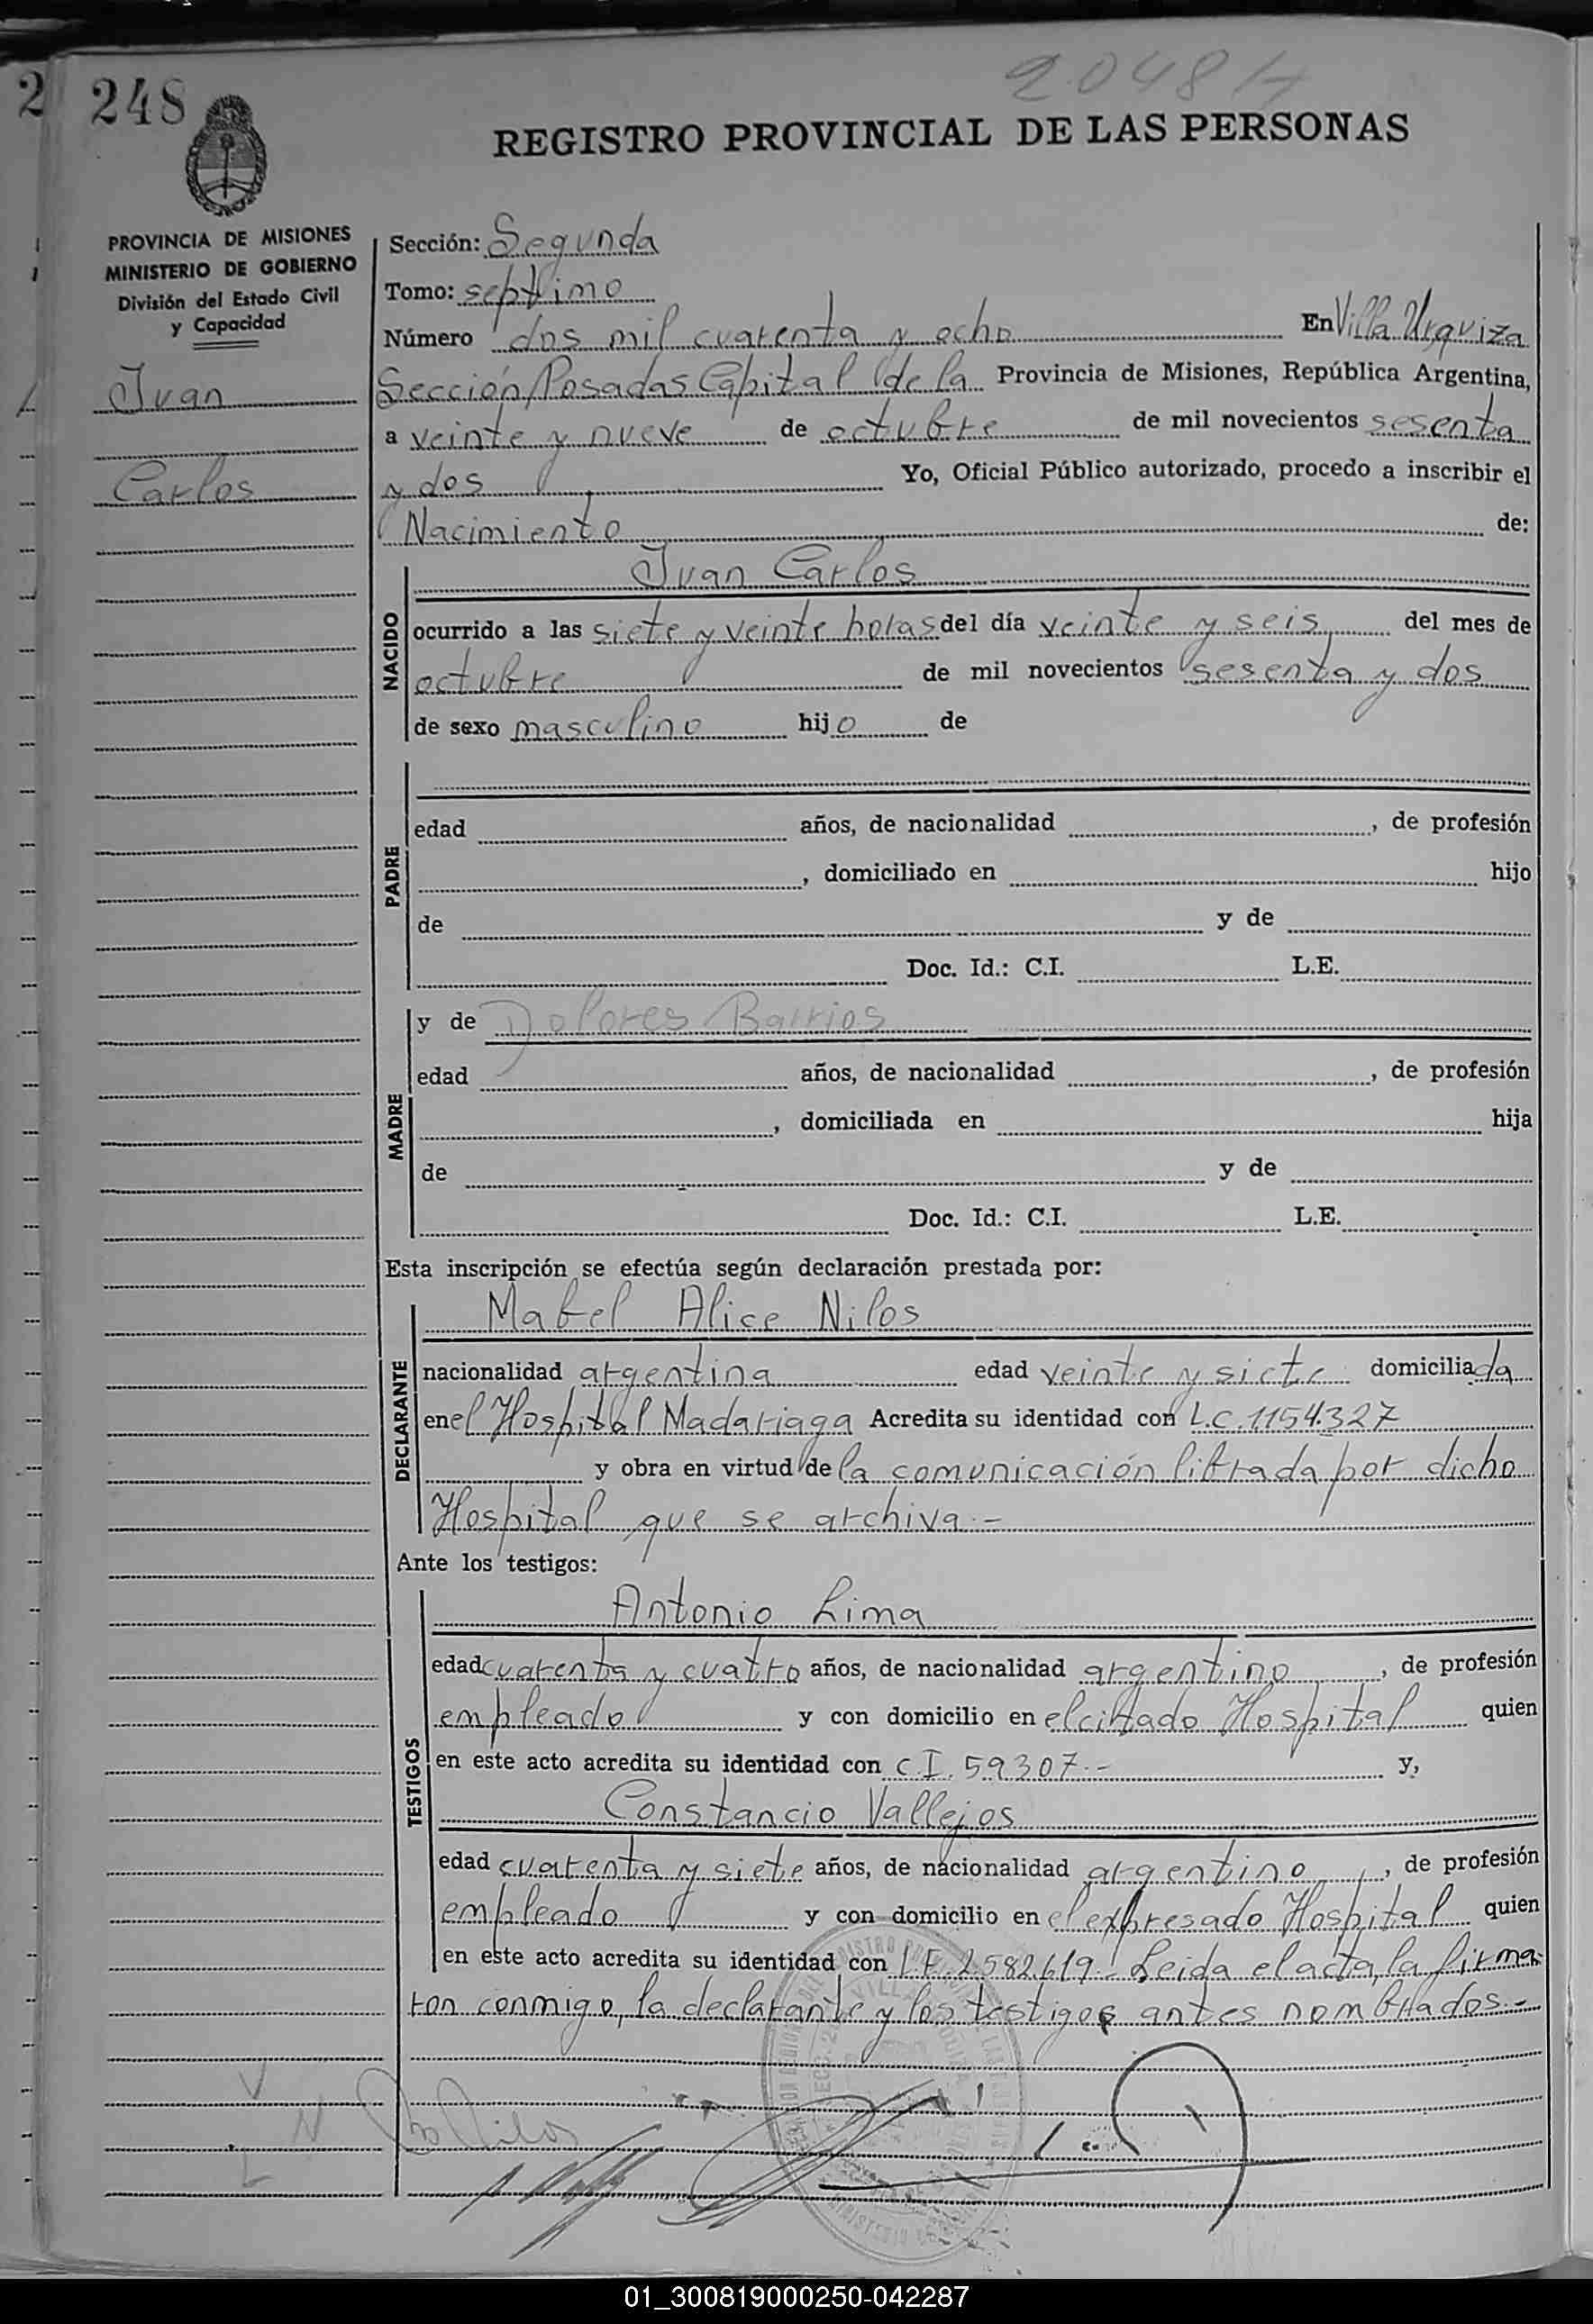 2048 H
2
248
REGISTRO PROVINCIAL DE LAS PERSONAS
PROVINCIA DE MISIONES
MINISTERIO DE GOBIERNO
División del Estado Civil
y Capacidad
Juan
Carlos
Sección: Segunda
Tomo: septimo
Número dos mil cuarenta y ocho En Villa Urquiza
Sección Posadas Capital de la Provincia de Misiones, República Argentina,
a veinte y nueve de octubre de mil novecientos sesenta
y dos Yo, Oficial Público autorizado, procedo a inscribir el
Nacimiento de:
NACIDO
Juan Carlos
ocurrido a las siete y veinte horas del día veinte y seis del mes de
octubre de mil novecientos sesenta y dos
de sexo masculino hijo de
PADRE
edad años, de nacionalidad , de profesión
, domiciliado en hijo
de y de
Doc. Id.: C.I. L.E.
MADRE
y de Dolores Barrios
edad años, de nacionalidad , de profesión
, domiciliada en hija
de y de
Doc. Id.: C.I. L.E.
Esta inscripción se efectúa según declaración prestada por:
DECLARANTE
Mabel Alice Nilos
nacionalidad argentina edad veinte y siete domiciliada
en el Hospital Madariaga Acredita su identidad con L.C. 1154.327
y obra en virtud de la comunicación librada por dicho
Hospital que se archiva.-
Ante los testigos:
TESTIGOS
Antonio Lima
edad cuarenta y cuatro años, de nacionalidad argentino, de profesión
empleado y con domicilio en el citado Hospital quien
en este acto acredita su identidad con C.I. 59307.- y,
Constancio Vallejos
edad cuarenta y siete años, de nacionalidad argentino, de profesión
empleado y con domicilio en el expresado Hospital quien
en este acto acredita su identidad con L.E. 2.582.619.- Leida el acta, la firma-
ron conmigo, la declarante y los testigos antes nombrados.-
01_300819000250-042287